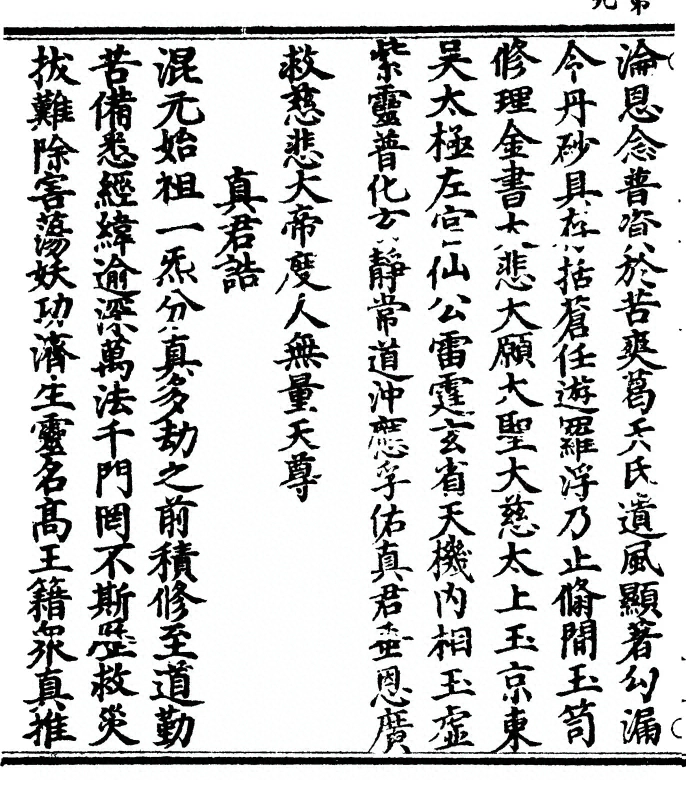 淪恩念普資於苦爽葛天氏遺風顯著勾漏
今丹砂具存括蒼任遊羅浮乃止脩閒玉笥
修理金書大悲大願大聖大慈太上玉京東
吳太極左宮仙公雷霆玄省天機內相玉虛
紫靈普化玄靜常道沖應孚佑真君垂恩廣
救慈悲大帝度人無量天尊
真君誥
混元始祖一炁分真多劫之前積修至道勤
苦備悉經緯逾深萬法千門罔不斯歷救災
拔難除害蕩妖功濟生靈名髙玉籍衆真推